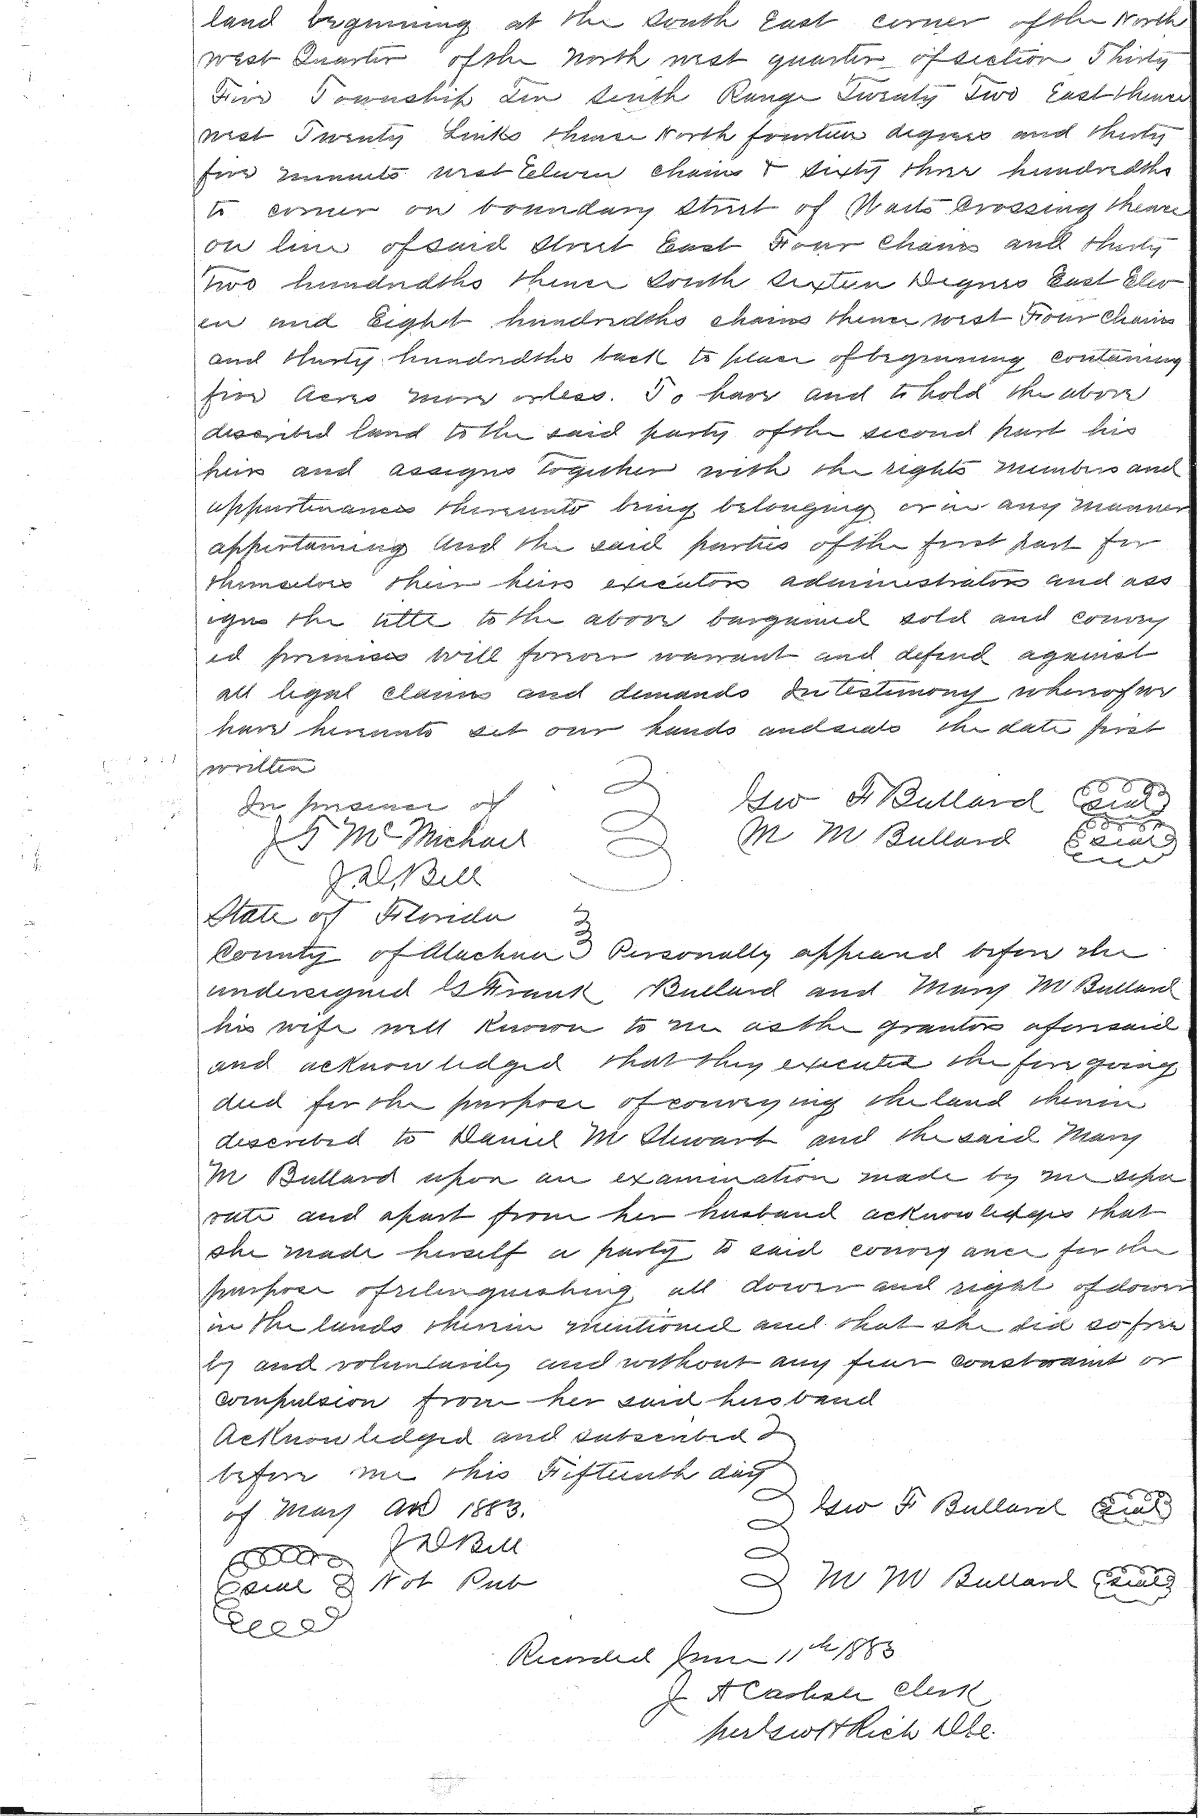 land beginning at the South East corner of the North
West Quarter of the North west quarter of section Thirty
Five Township Ten South Range Twenty Two East thence
west Twenty Links thence North fourteen degrees and thirty
five minuets west Eleven chains & sixty three hundredths
to corner on boundary Street of Waits Crossing thence
on line of said Street East Four Chains and thirty
Two hundredths thence South Sixteen Degrees East Elev
en and Eight hundredths chains thence west Four Chains
and thirty hundredths back to place of beginning containing
five Acres more or less. To have and to hold the above
described land to the said party of the second part his
heirs and assigns together with the rights members and
appurtenances thereunto being belonging or in any manner
appertaining And the said parties of the first part for
themselves their heirs executors administrators and ass
igns the title to the above bargained sold and convey
ed premises will forever warrant and defend against
all legal claims and demands In testimony whereof we
have hereunto set our hands and seals the date first
written
In presence of Geo F Bullard Seal
J T McMichael M M Bullard Seal
J.D. Bell
State of Florida
County of Alachua Personally appeared before the
undersigned G Frank Bullard and Mary M Bullard
his wife well known to me as the grantors aforesaid
and acknowledged that they executed the foregoing
deed for the purpose of conveying the land therein
described to Daniel M Stewart and the said Mary
M Bullard upon an examination made by me sepa
rate and apart from her husband acknowledges that
she made herself a party to said conveyance for the
purpose of relinquishing all dower and right of dower
in the lands therein mentioned and that she did so free
ly and voluntarily and without any fear constraint or
compulsion from her said husband
Acknowledged and subscribed
before me this Fifteenth day
of May AD 1883. Geo F Bullard Seal
J D Bell
Seal Not Pub M M Bullard Seal
Recorded June 11th 1883
J A Carlisle Clerk
per Geo H Rich D.C.